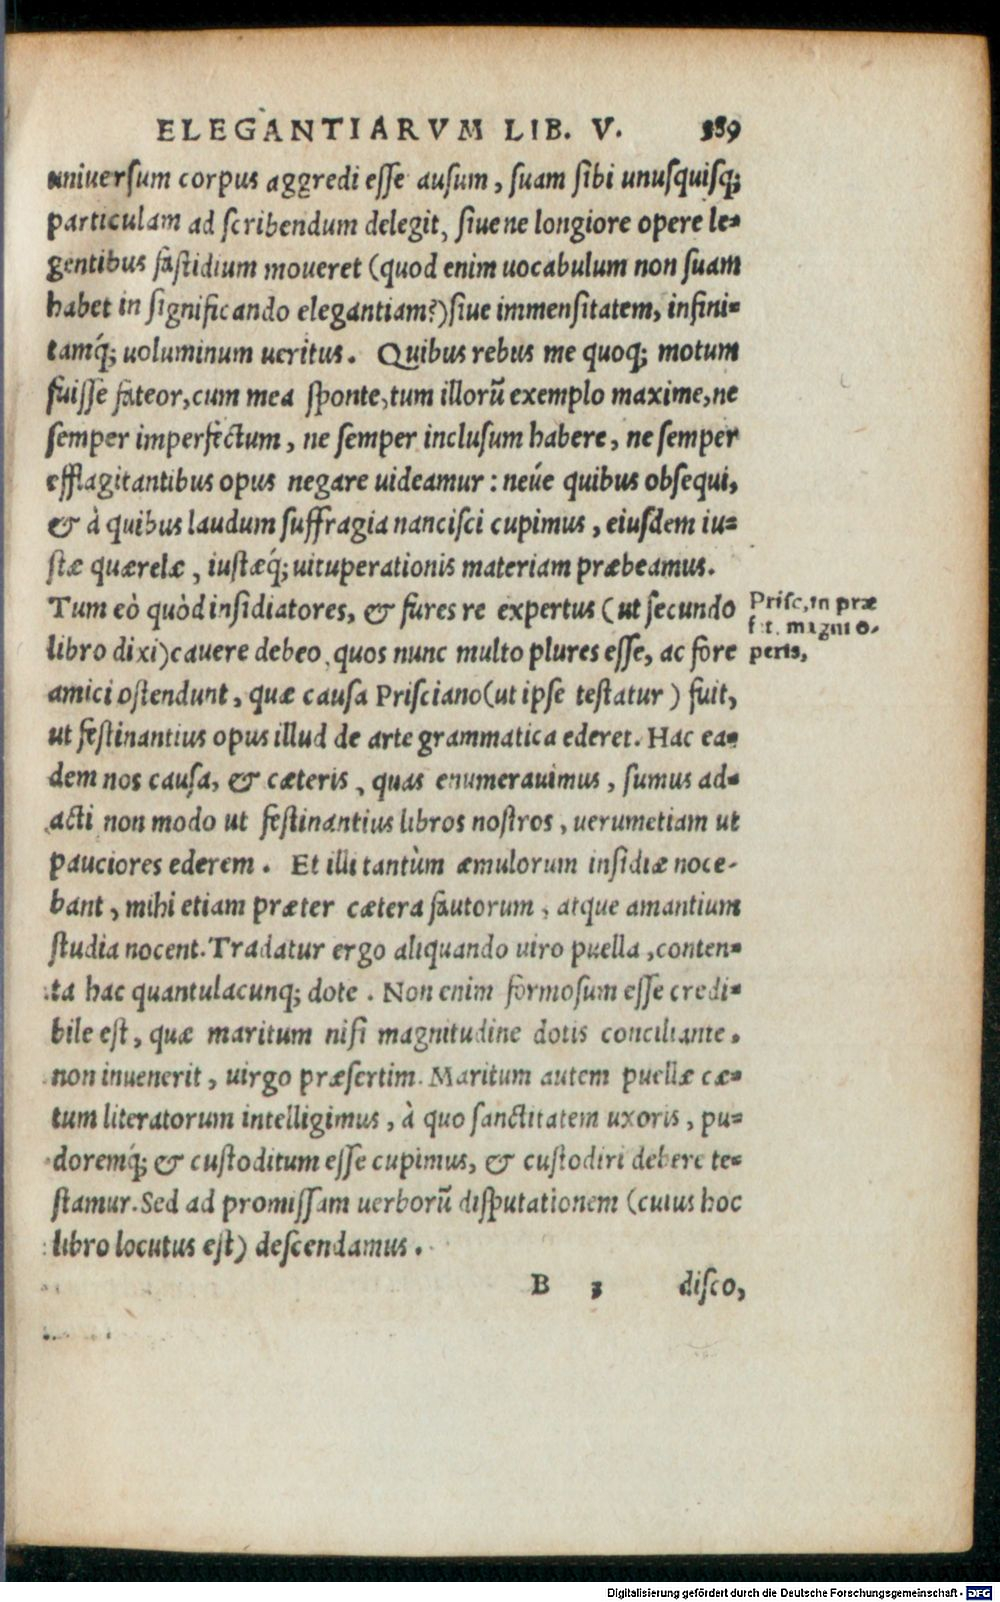 ELEGANTIARVM LIB. V. 389
uniuersum corpus aggredi esse ausum, suam sibi unusquisq;
particulam ad scribendum delegit, siue ne longiore opere le-
gentibus fastidium moueret (quod enim uocabulum non suam
habet in significando elegantiam?) siue immensitatem, infini-
tamq́; uoluminum ueritus. Quibus rebus me quoq; motum
fuisse fateor, cum mea sponte, tum illorũ exemplo maxime, ne
semper imperfectum, ne semper inclusum habere, ne semper
efflagitantibus opus negare uideamur: neúe quibus obsequi,
& à quibus laudum suffragia nancisci cupimus, eiusdem iu-
stæ quærelæ, iustæq́; uituperationis materiam præbeamus.
Tum eò quòd insidiatores, & fures re expertus (ut secundo
libro dixi) cauere debeo, quos nunc multo plures esse, ac fore
amici ostendunt, quæ causa Prisciano (ut ipse testatur) fuit,
ut festinantius opus illud de arte grammatica ederet. Hac ea-
dem nos causa, & cæteris, quas enumerauimus, sumus ad-
acti non modo ut festinantius libros nostros, uerumetiam ut
pauciores ederem. Et illi tantùm æmulorum insidiæ noce-
bant, mihi etiam præter cætera fautorum, atque amantium
studia nocent. Tradatur ergo aliquando uiro puella, conten-
ta hac quantulacunq; dote. Non enim formosum esse credi-
bile est, quæ maritum nisi magnitudine dotis conciliante.
non inuenerit, uirgo præsertim. Maritum autem puellæ cæ-
tum literatorum intelligimus, à quo sanctitatem uxoris, pu-
doremq́; & custoditum esse cupimus, & custodiri debere te-
stamur. Sed ad promissam uerborũ disputationem (cuius hoc
libro locutus est) descendamus.
B 3 disco,
Prisc, in præ
fat. magni o-
peris,
Digitalisierung gefördert durch die Deutsche Forschungsgemeinschaft - DFG